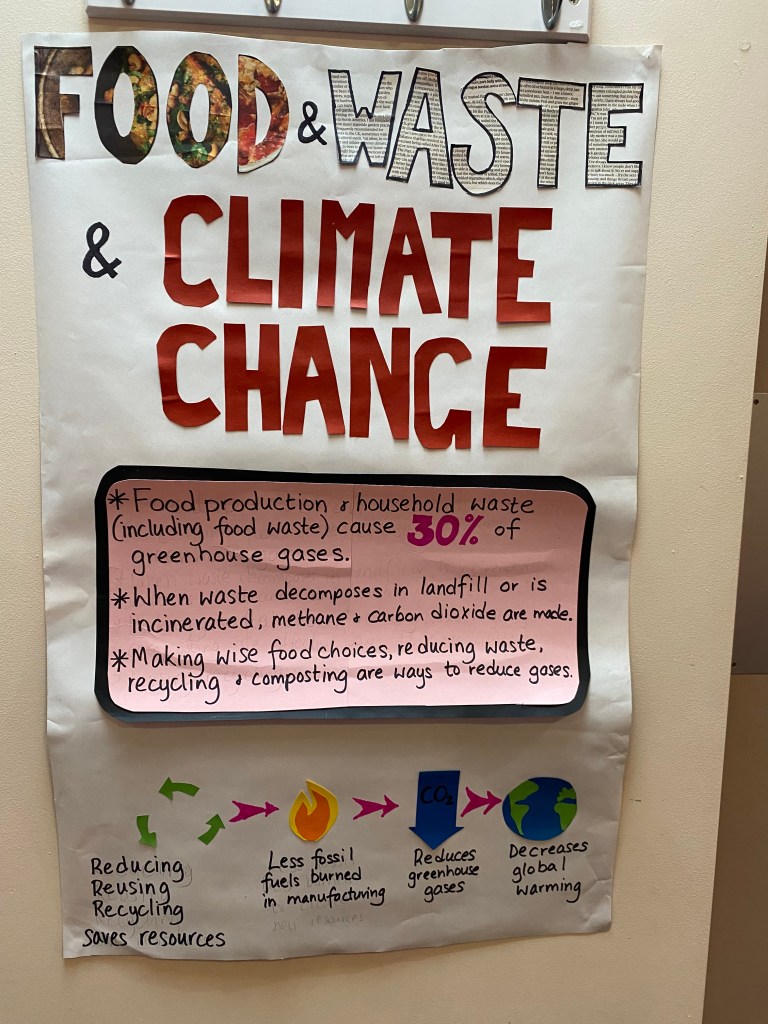 FOOD & WASTE
& CLIMATE
CHANGE
* Food production & household waste
(including food waste) cause 30% of
greenhouse gases.
* When waste decomposes in landfill or is
incinerated, methane & carbon dioxide are made.
* Making wise food choices, reducing waste,
recycling & composting are ways to reduce gases.
CO2
Reducing
Reusing
Recycling
saves resources
Less fossil
fuels burned
in manufacturing
Reduces
greenhouse
gases
Decreases
global
warming